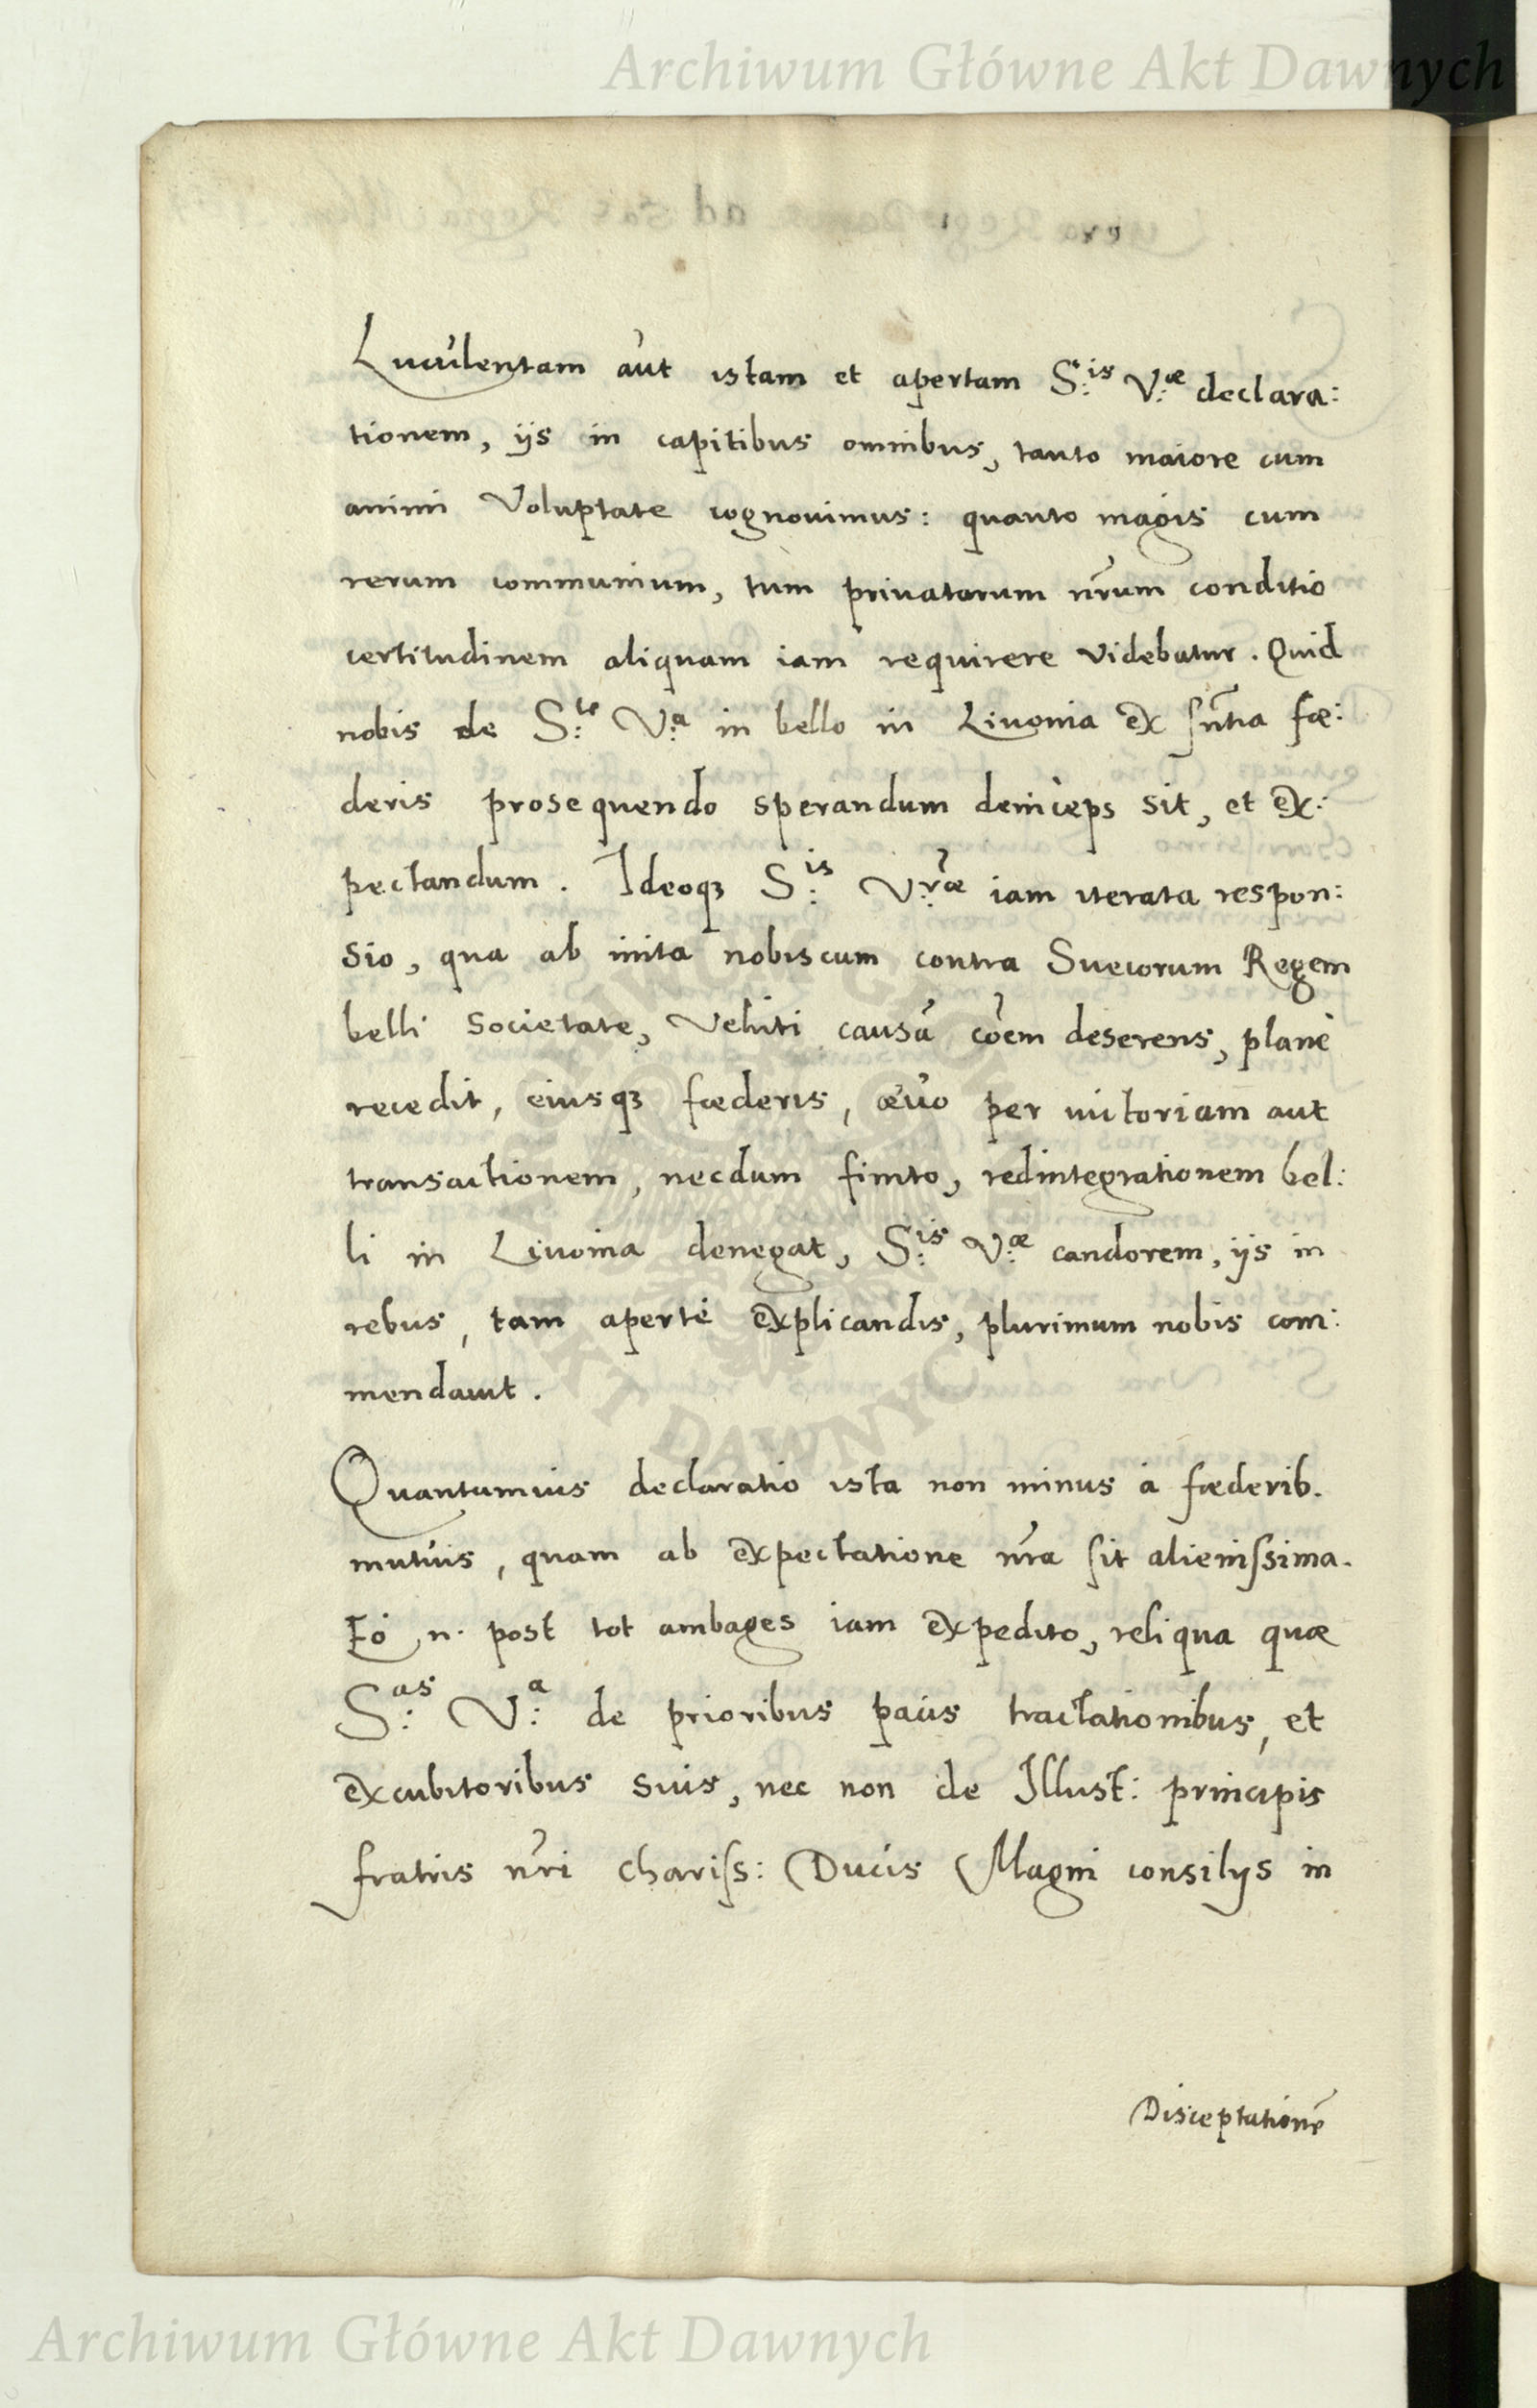 Archiwum Główne Akt Dawnych
Luculentam aūt istam et apertam S:is V:æ declara:
tionem, ijs in capitibus omnibus, tanto maiore cum
animi Voluptate cognouimus: quanto magis cum
rerum communium, tum priuatarum nr̄um conditio
certitudinem aliquam iam requirere videbatur. Quid
nobis de S:te V:a in bello in Liuonia ex sn̄tia fœ:
deris prosequendo sperandum deinceps sit, et ex:
pectandum. Ideoqꝫ S:is V:ræ iam iterata respon:
sio, qua ab inita nobiscum contra Suecorum Regem
belli societate, veluti causā cōem deserens, planè
recedit, eiusqꝫ fœderis, æuo per uictoriam aut
transactionem, necdum finito, redintegrationem bel:
li in Liuonia denegat, S:is V:æ candorem, ijs in
rebus, tam apertè explicandis, plurimum nobis com:
mendauit.
Quantumuis declaratio ista non minus à fœderib.
mutuis, quam ab expectatione nr̄a sit alienissima.
Eò n. post tot ambages iam expedito, reliqua quæ
S:as V:a de prioribus pacis tractationibus, et
excubitoribus suis, nec non de Illust: principis
fratris nr̄i chariss: Ducis Magni consilijs in
Disceptationē
Archiwum Główne Akt Dawnych